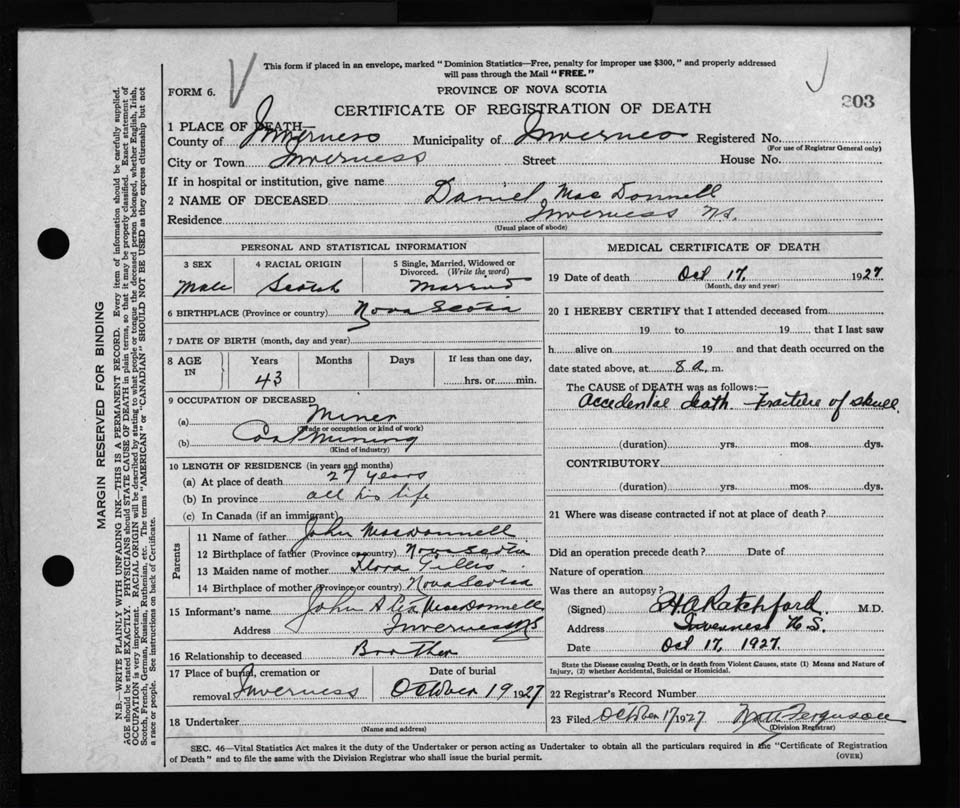 This form if placed in an envelope, marked "Dominion Statistics—Free, penalty for improper use $300," and properly addressed
will pass through the Mail "FREE."
FORM 6.
PROVINCE OF NOVA SCOTIA
CERTIFICATE OF REGISTRATION OF DEATH
203
1 PLACE OF DEATH—
County of Inverness Municipality of Inverness Registered No.
(For use of Registrar General only)
City or Town Inverness Street House No.
If in hospital or institution, give name
2 NAME OF DECEASED Daniel MacDonnell
Residence Inverness N.S.
(Usual place of abode)
PERSONAL AND STATISTICAL INFORMATION
3 SEX 4 RACIAL ORIGIN 5 Single, Married, Widowed or
Divorced. (Write the word)
Male Scotch Married
6 BIRTHPLACE (Province or country) Nova Scotia
7 DATE OF BIRTH (month, day and year)
8 AGE IN Years Months Days If less than one day,
43 hrs. or min.
9 OCCUPATION OF DECEASED
(a) Miner
(Trade or occupation or kind of work)
(b) Coal Mining
(Kind of industry)
10 LENGTH OF RESIDENCE (in years and months)
(a) At place of death 27 years
(b) In province all his life
(c) In Canada (if an immigrant)
Parents
11 Name of father John MacDonnell
12 Birthplace of father (Province or country) Nova Scotia
13 Maiden name of mother Flora Gillis
14 Birthplace of mother (Province or country) Nova Scotia
15 Informant's name John Alex MacDonnell
Address Inverness N.S
16 Relationship to deceased Brother
17 Place of burial, cremation or Date of burial
removal Inverness October 19 1927
18 Undertaker
(Name and address)
MEDICAL CERTIFICATE OF DEATH
19 Date of death Oct 17, 1927
(Month, day and year)
20 I HEREBY CERTIFY that I attended deceased from
19 to 19 that I last saw
h alive on 19 and that death occurred on the
date stated above, at 8 a. m.
The CAUSE of DEATH was as follows:—
Accidental death. Fracture of skull.
(duration) yrs. mos. dys.
CONTRIBUTORY
(duration) yrs. mos. dys.
21 Where was disease contracted if not at place of death?
Did an operation precede death? Date of
Nature of operation
Was there an autopsy?
(Signed) H.A. Ratchford. M.D.
Address Inverness N.S.
Date Oct 17, 1927.
State the Disease causing Death, or in death from Violent Causes, state (1) Means and Nature of
Injury, (2) whether Accidental, Suicidal or Homicidal.
22 Registrar's Record Number
23 Filed October 17 1927 Ferguson
(Division Registrar)
SEC. 46—Vital Statistics Act makes it the duty of the Undertaker or person acting as Undertaker to obtain all the particulars required in the "Certificate of Registration
of Death" and to file the same with the Division Registrar who shall issue the burial permit.
(OVER)
MARGIN RESERVED FOR BINDING
N.B.—WRITE PLAINLY WITH UNFADING INK—THIS IS A PERMANENT RECORD. Every item of information should be carefully supplied.
AGE should be stated EXACTLY. PHYSICIANS should STATE CAUSE OF DEATH in plain terms, so that it may be properly classified. Exact statement of
OCCUPATION is very important. RACIAL ORIGIN will be described by stating to what people or tongue the deceased person belonged, whether English, Irish,
Scotch, French, German, Russian, Ruthenian, etc. The terms "AMERICAN" or "CANADIAN" SHOULD NOT BE USED as they express citizenship but not
a race or people. See instructions on back of Certificate.